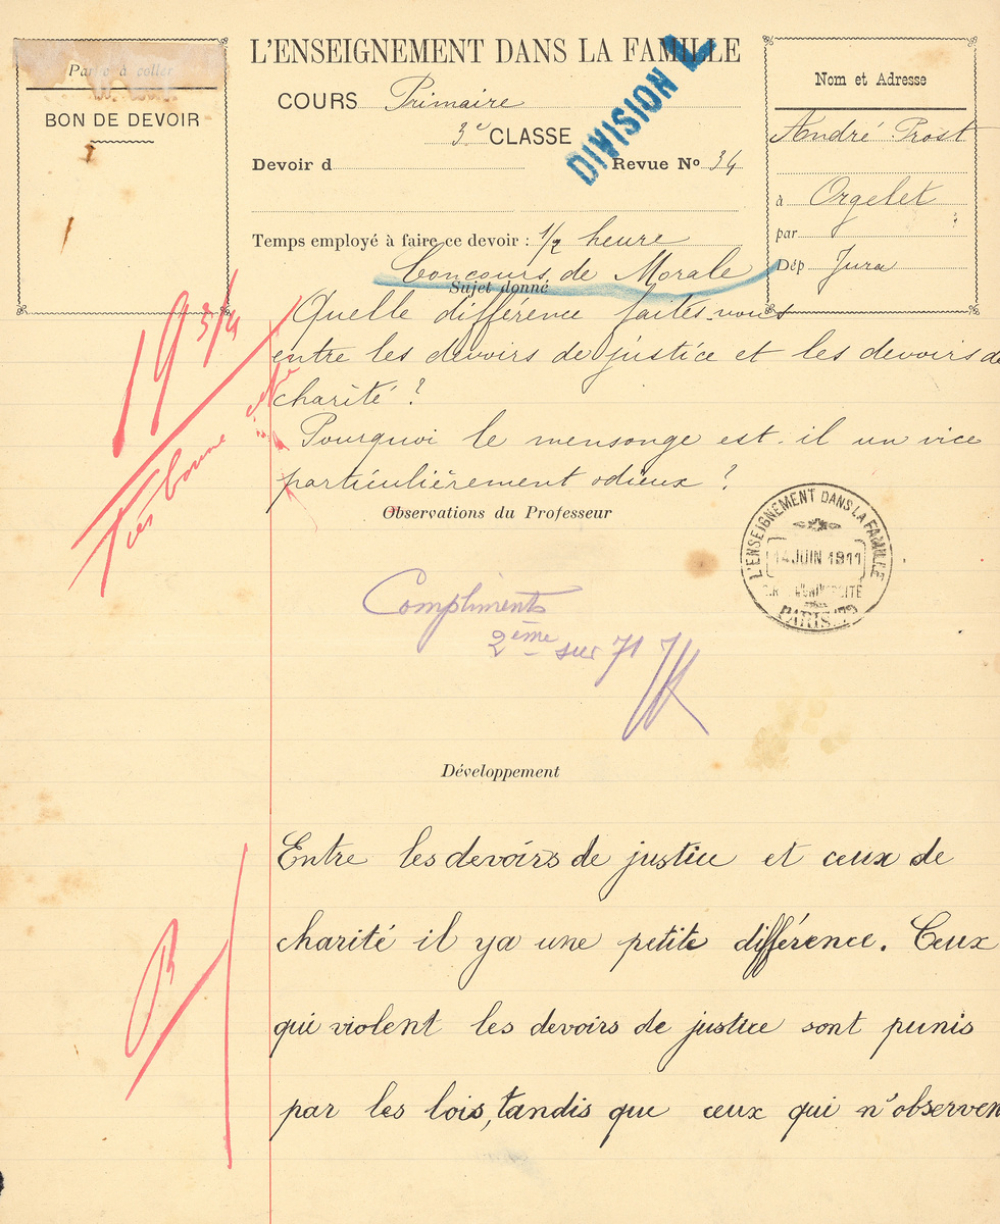 L'ENSEIGNEMENT DANS LA FAMILLE
BON DE DEVOIR
COURS Primaire
3e CLASSE
DIVISION
Devoir d
Revue No 34
Temps employé à faire ce devoir : 1/2 heure
Nom et Adresse
André Prost
à Orgelet
par
Dép Jura
Concours de Morale
Sujet donné
Quelle différence faites-vous
entre les devoirs de justice et les devoirs de
charité ?
Pourquoi le mensonge est-il un vice
particulièrement odieux ?
19 3/4
Très bonne
Observations du Professeur
L'ENSEIGNEMENT DANS LA FAMILLE
14 JUIN 1911
PARIS
Compliments
2ème sur 71
Développement
Entre les devoirs de justice et ceux de
charité il ya une petite différence. Ceux
qui violent les devoirs de justice sont punis
par les lois, tandis que ceux qui n'observen
B